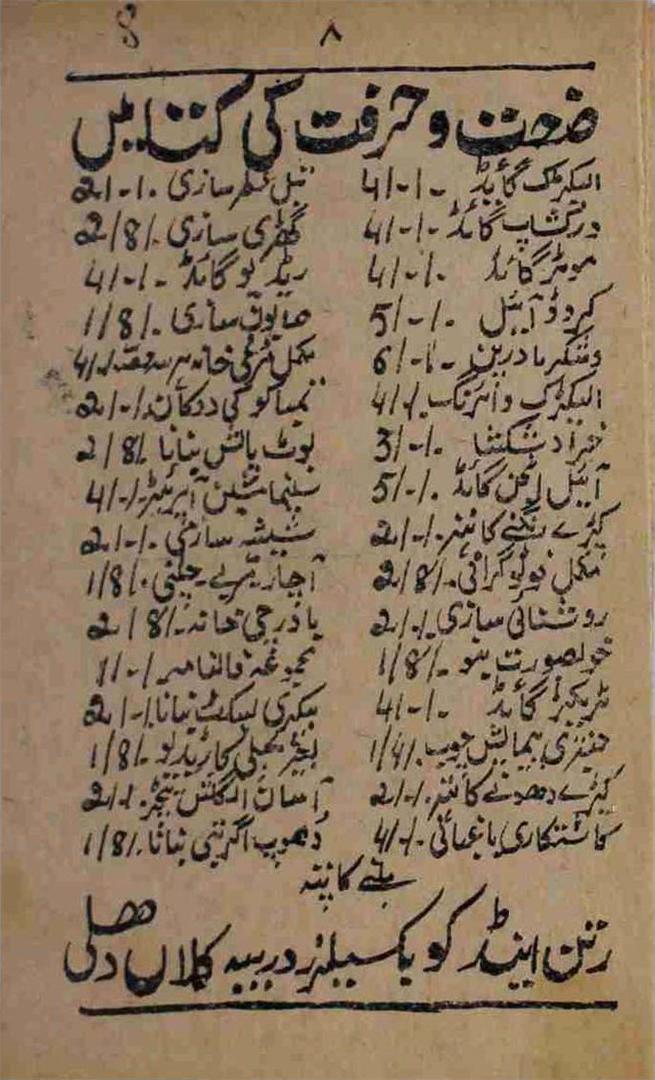 8 ۸
صنعت و حرفت کی کتابیں
الیکٹرک گائیڈ 4/-/-
ورکشاپ گائڈ 4/-/-
موٹر گائڈ 4/-/-
کروڈ آئیل 5/-/-
6/-/-
الیکٹرک وائرنگ 4/-/-
خراد شکشا 3/-/-
آئیل انجن گائڈ 5/-/-
کپڑے رنگنے کا ہنر 2/-/-
مکمل فوٹوگرافی 2/8/-
روشنائی سازی 2/-/-
خوبصورت بنو 1/8/-
ٹریکٹر گائڈ 4/-/-
جنتری پیمائش چوب 1/4/-
کپڑے دھونے کا ہنر 2/-/-
کاشتکاری باغبانی 4/-/-
تیل عطر سازی 2/-/-
گھڑی سازی 2/8/-
ریڈیو گائڈ 4/-/-
صابون سازی 1/8/-
مکمل مرغی خانہ ہر سہ حصہ 4/-/-
تمباکو کی دوکان 2/-/-
بوٹ پالش بنانا 2/8/-
سنیما مشین آپریٹر 4/-/-
شیشہ سازی 2/-/-
آچار مربے چٹنی 1/8/-
باورچی خانہ 2/8/-
مجموعہ فالنامہ 1/-/-
بیکری بسکٹ بنانا 2/-/-
بغیر بجلی کا ریڈیو 1/8/-
آسان انگلش ٹیچر 2/-/-
دھوپ اگربتی بنانا 1/8/-
ملنے کا پتہ
رتن اینڈ کو بکسیلرز دریبہ کلاں دھلی